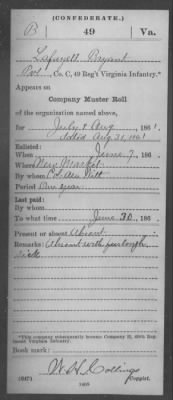 (CONFEDERATE.)
B 49 Va.
Lafayett Bryant
Pvt, Co. C, 49 Reg't Virginia Infantry.*
Appears on
Company Muster Roll
of the organization named above,
for July & Aug, 1861.
dated Aug 31, 1861
Enlisted:
When June 7, 186 .
Where New Market
By whom Col. Alex
Period One year
Last paid:
By whom
To what time June 30, 186 .
Present or absent Absent
Remarks: Absent with furlough
sick
*This company subsequently became Company
Virginia Infantry.
Book mark:
W H Collings
(647) Copyist.